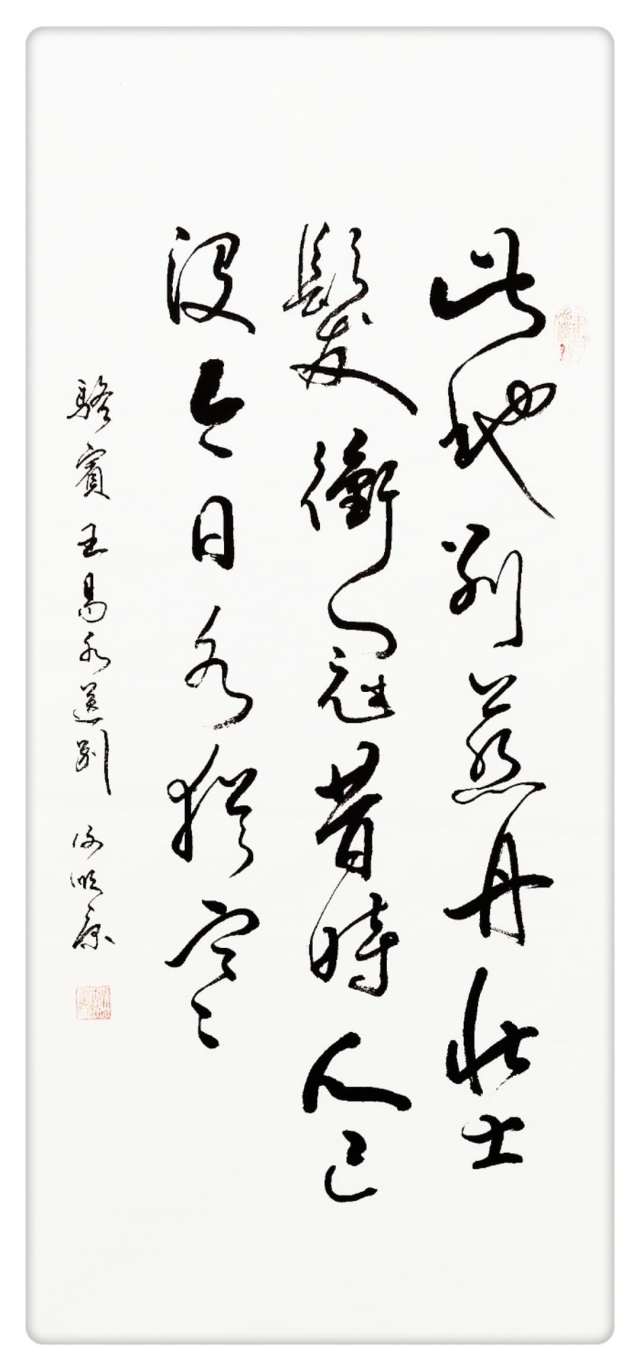 此地別燕丹壯士
髮衝冠昔時人已
沒今日水猶寒
駱賓王易水送別